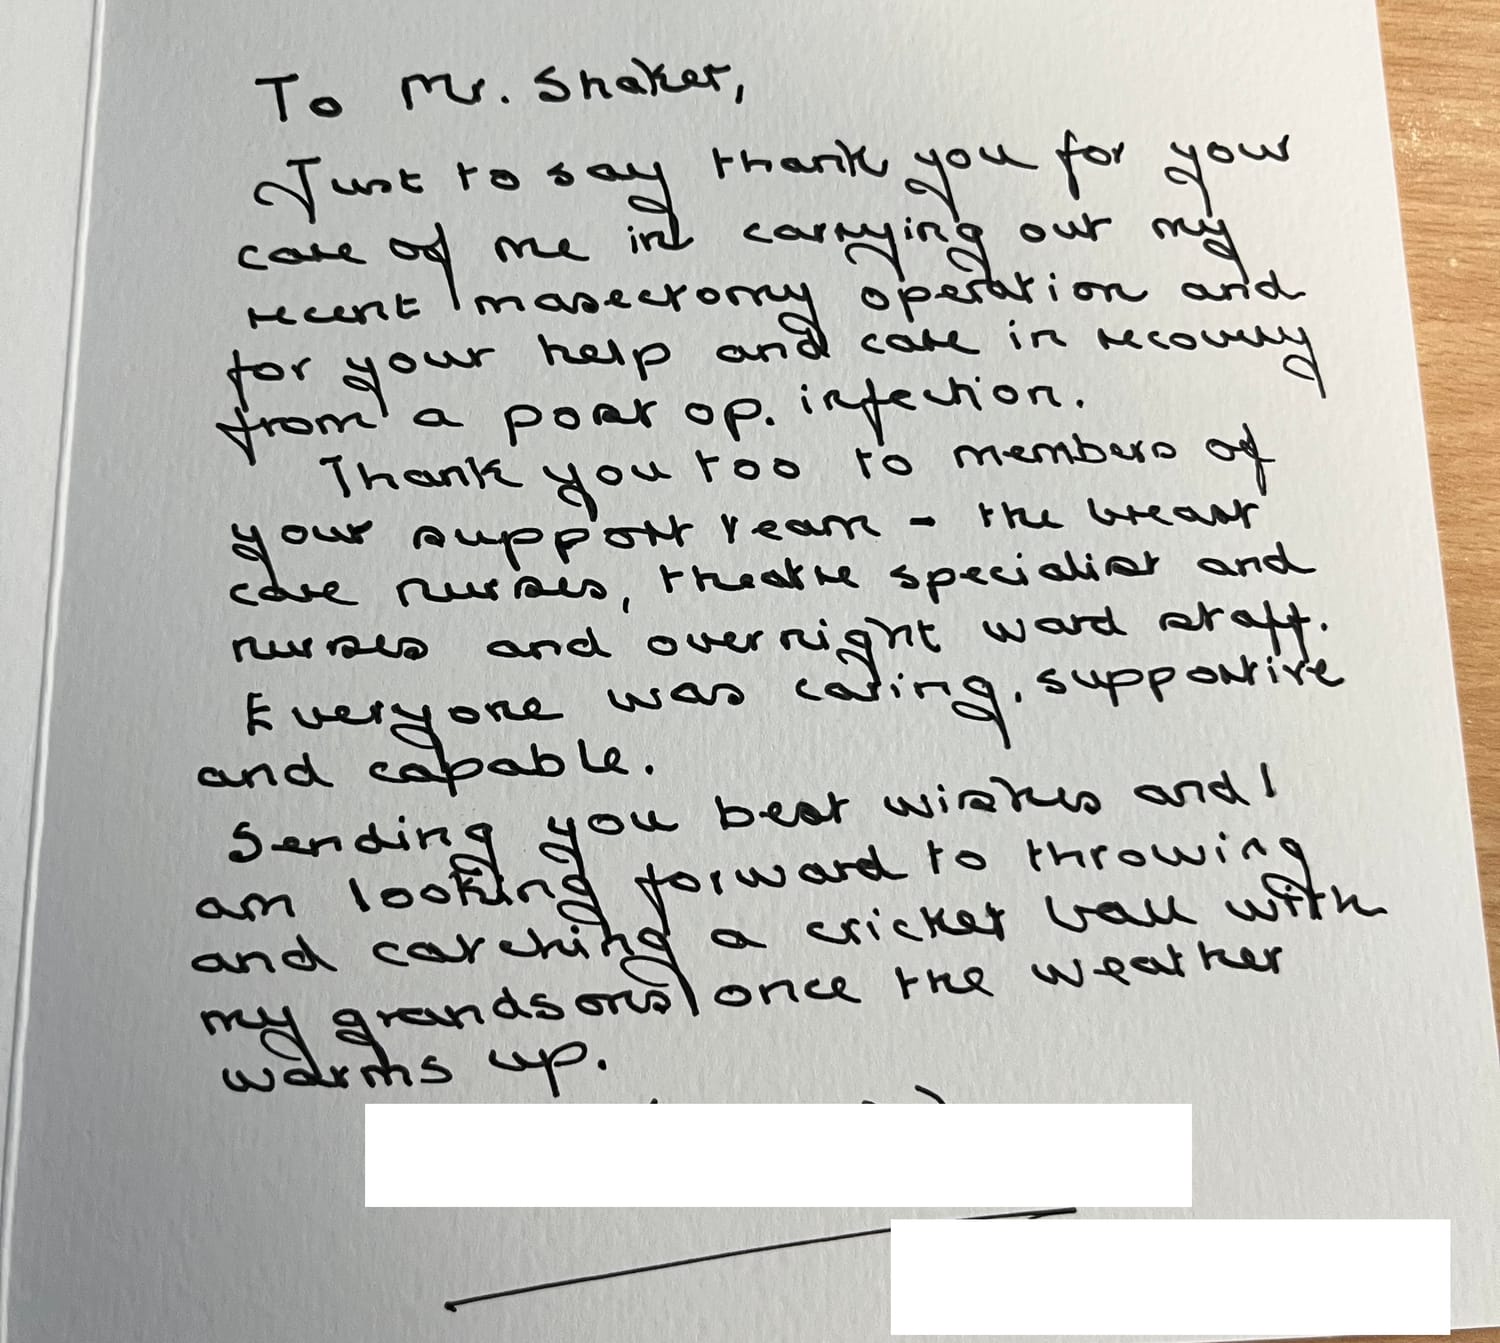 To Mr. Shaker,
Just to say thank you for your
care of me in carrying out my
recent masectomy operation and
for your help and care in recovery
from a post op. infection.
Thank you too to members of
your support team - the breast
care nurses, theatre specialist and
nurses and overnight ward staff.
Everyone was caring, supportive
and capable.
Sending you best wishes and I
am looking forward to throwing
and catching a cricket ball with
my grandsons once the weather
warms up.